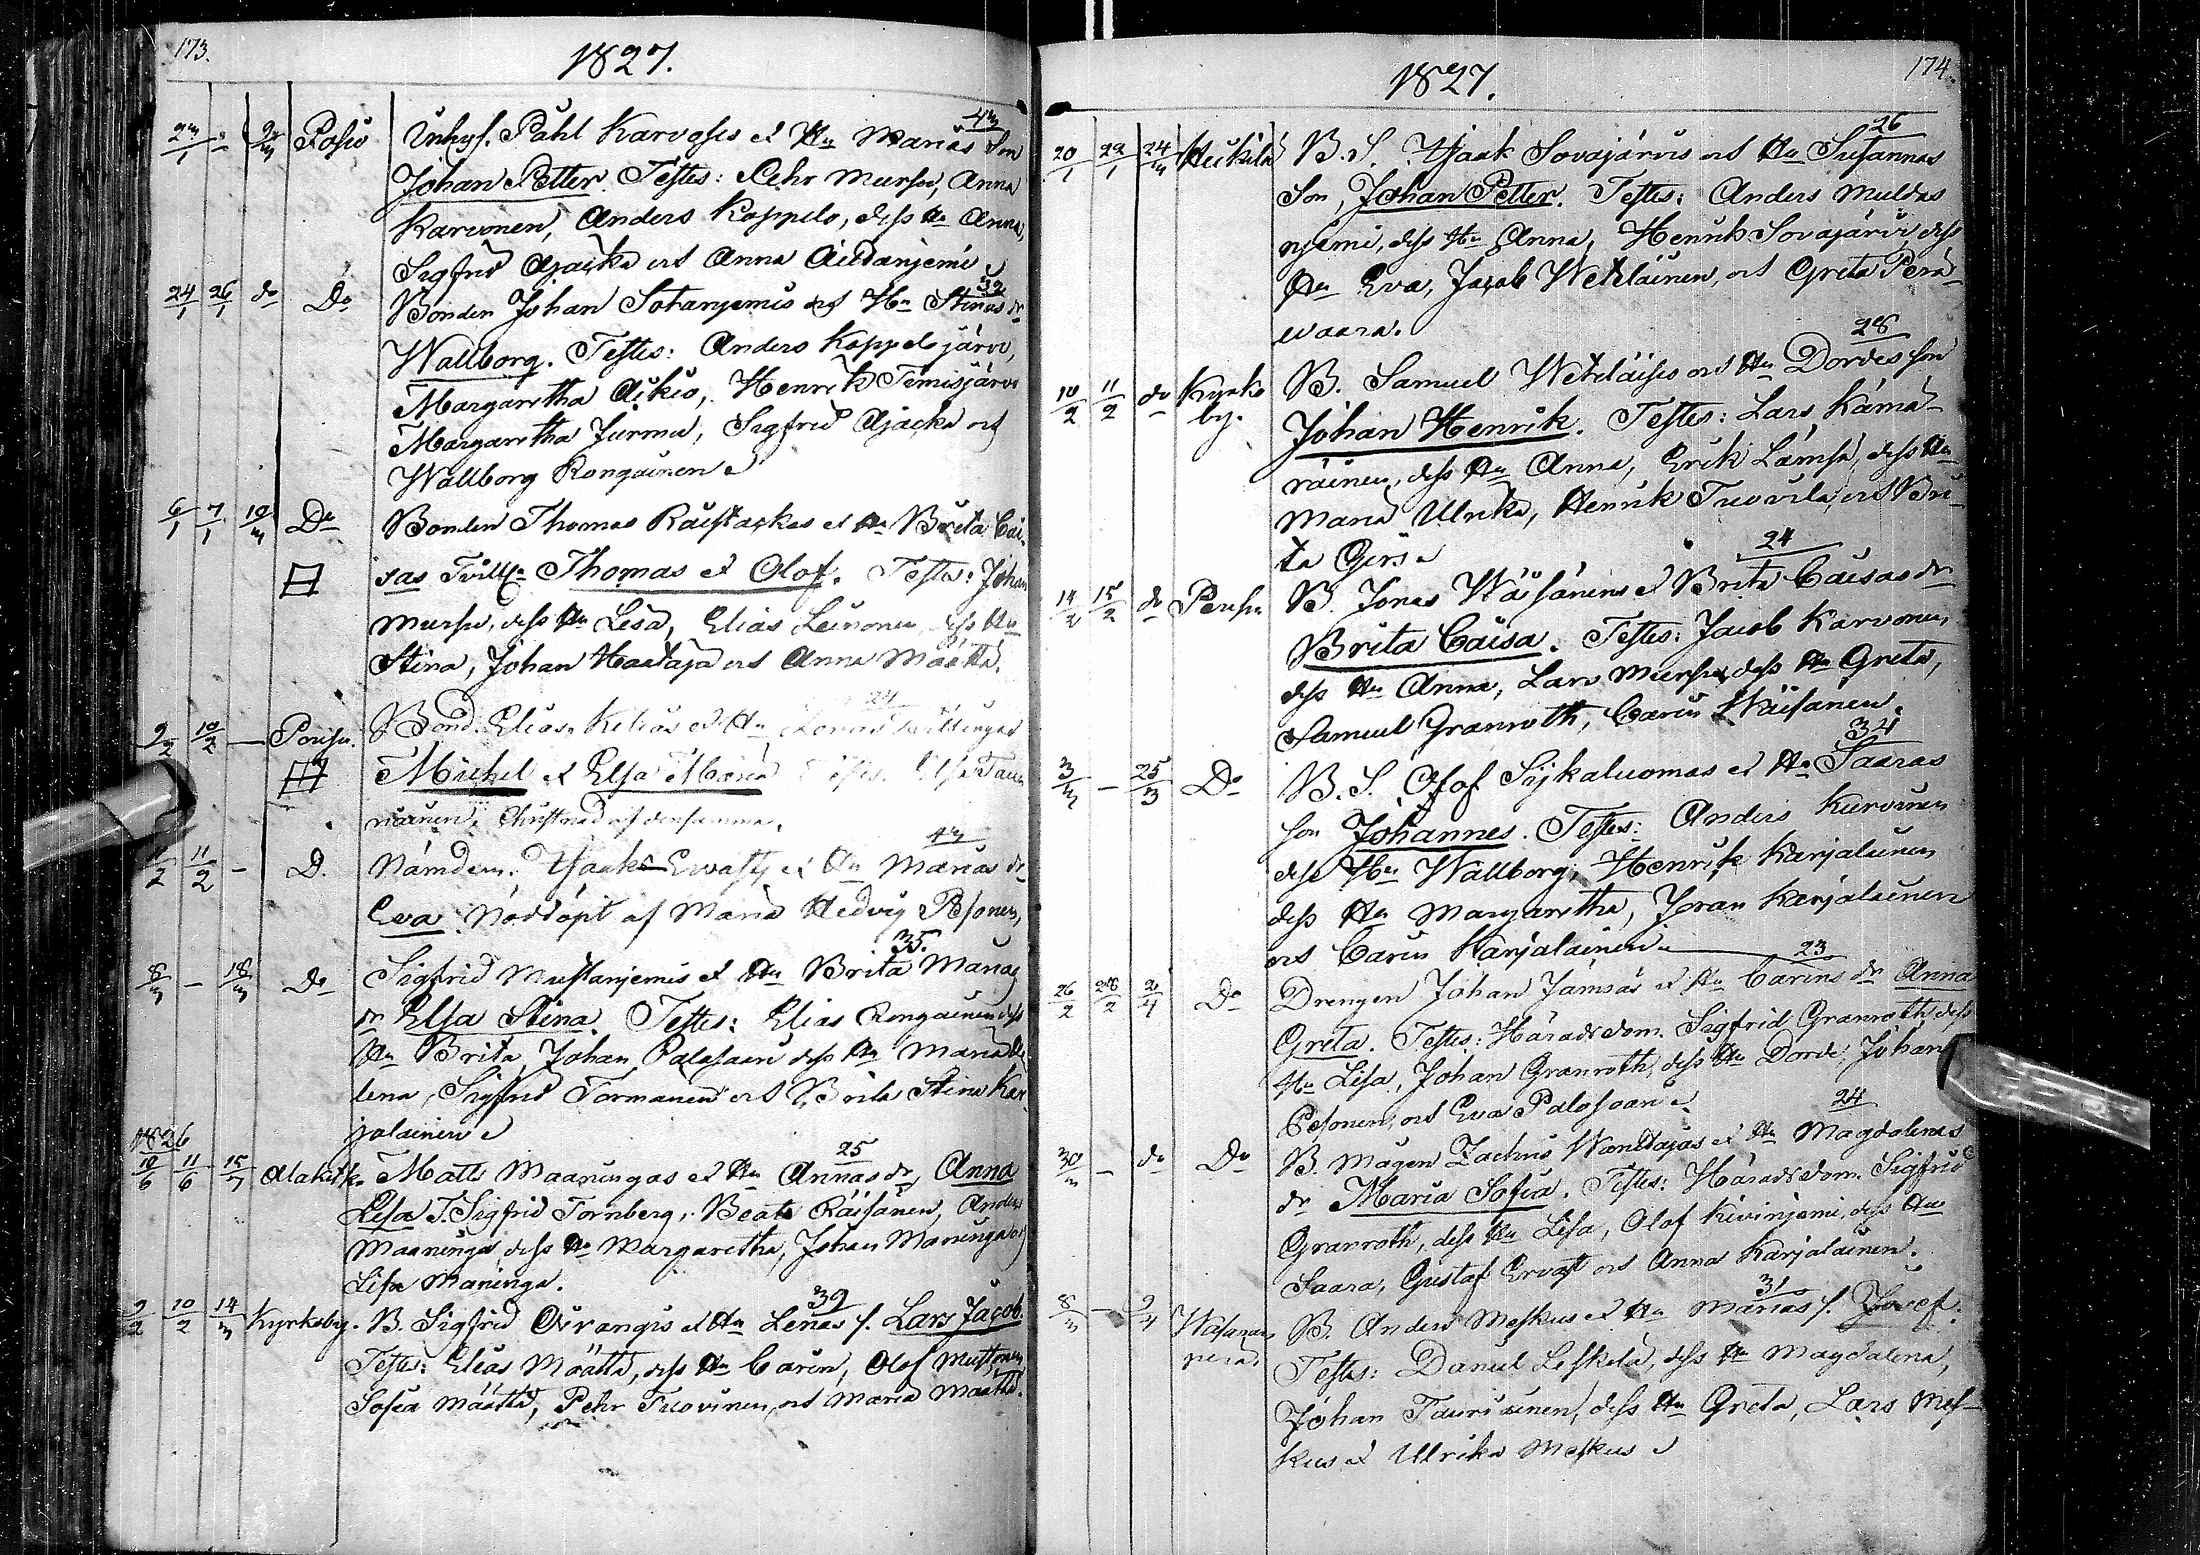 173.
1827.
23/1 - 9/3 Posio Inhys. Påhl Karvoses et Hu Marias Son 43
Johan Petter. Testes: Pehr Mursu, Anna
Karvonen, Anders Koppelo, dess Hu Anna,
Sigfrid Ajacka ut Anna
24/1 26/1 do Do Bonden Johan Sotanjemis ut Hu Stinas dr 32
Wallborg. Testes: Anders Koppelojärvi,
Margaretha Aikio, Henrik Temisjärvi
Margaretha Jurmu, Sigfrid Ajacka ut
Wallborg Rongainen
6/1 7/1 10/3 Do Bonden Thomas et Hu Brita Cai-
sas Tvill. Thomas et Olof. Testes: Johan
Mursu, dess Hu Lisa, Elias Leinonen, dess Hu
Stina, Johan Haataja ut Anna Määttä.
9/2 10/2 — Bond. Elias et Hu Lenas Tvillingar 24
Michel et Elsa Maria Testes. Elsa Tau-
riainen. Christnad af densamma.
11/2 11/2 - D. Nämdem. Isaak Ervasty et Hu Marias dr 43
Eva. Nöddöpt af Maria Hedvig Pesonen,
8/3 - 18/3 Do Sigfrid Mustanjemis et Hu Brita Marias 35.
dr Elsa Stina. Testes: Elias Rongainen dess
Hu Brita, Johan Palosaari dess Hu
lena, Sigfrid Tormänen ut Brita Stina Kar-
jalainen
1826
10/6 11/6 15/7 Alakitk. Matts Maaningas et Hu Annas dr Anna 25
Lisa T. Sigfrid Tornberg, Beata Räisänen, Anders
Maaninga, dess Hu Margaretha, Johan Maninga ut
Lisa Maninga.
9/2 10/2 14/3 Kyrkoby. B. Sigfrid Oivangis et Hu Lenas s. Lars Jacob. 39
Testes: Elias Määttä, dess Hu Carin, Olof Muttonen
Sofia Määttä, Pehr Tuovinen, ut Maria Määttä.
174.
1827.
20/1 22/1 24/3 Heikilä B.S. Isaak Sovajärvis ut Hu Susannas 26
Son, Johan Petter. Testes: Anders Muldas
njemi, dess Hu Anna, Henrik Sovajärvi, dess
Hu Eva, Jacob Wetelainen, ut Greta Perä-
waara.
10/2 11/2 do Kyrko by. B. Samuel Weteläises ut Hu Dordes son 28
Johan Henrik. Testes: Lars Kämä-
räinen, dess Hu Anna, Erik Lämsä, dess Hu
Maria Ulrika, Henrik Tuovila, ut Bri-
ta Girs
14/2 15/2 do B. Jonas Wäisänens et Brita Caisas dr 24
Brita Caisa. Testes: Jacob Karvonen,
dess Hu Anna, Lars Mursu, dess Hu Greta,
Samuel Granroth, Carin Wäisänen.
3/3 - 25/3 Do B.S. Olof Sijkaluomas et Hu Saaras 34
son Johannes. Testes: Anders Kurvinen
dess Hu Wallborg, Henrik Karjalainen
dess Hu Margaretha, Jöran Karjalainen
ut Carin Karjalainen
26/2 28/2 2/4 Do Drengen Johan Jämsäs et Hu Carins dr Anna 23
Greta. Testes: Häradsdom. Sigfrid Granroth, dess
Hu Lisa, Johan Granroth, dess Hu Dorde, Johan
Pesonen, ut Eva Palosaari
30/3 - do Do B. Mågen Zachris et Hu Magdalenas 24
dr Maria Sofia. Testes: Häradsdom. Sigfrid
Granroth, dess Hu Lisa, Olof Kivinjemi, dess Hu
Saara, Gustaf Ervast ut Anna Karjalainen.
8/3 - 9/4 B. Anders Meskus et Hu Marias s. Josef. 31
Testes: Daniel Leskelä, dess Hu Magdalena,
Johan Tauriainen, dess Hu Greta, Lars Mes-
kus et Ulrika Meskus